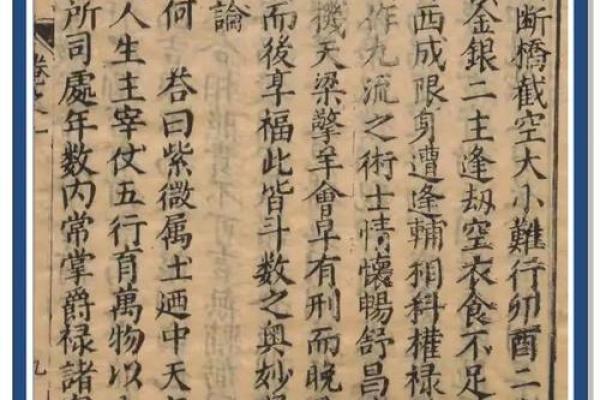 断橋截空大小難行卯酉二
金銀二主逢劫空衣食不足
西成限身遭逢輔相科權祿
作九流之術士情懷暢舒昌
機天梁擎羊會早有刑而晚
而後享福此皆斗數之奥妙
論
何 荅曰紫微属土廼中天
人生主宰仗五行育萬物以
所司處年数內常掌爵祿諸
卷之一
九